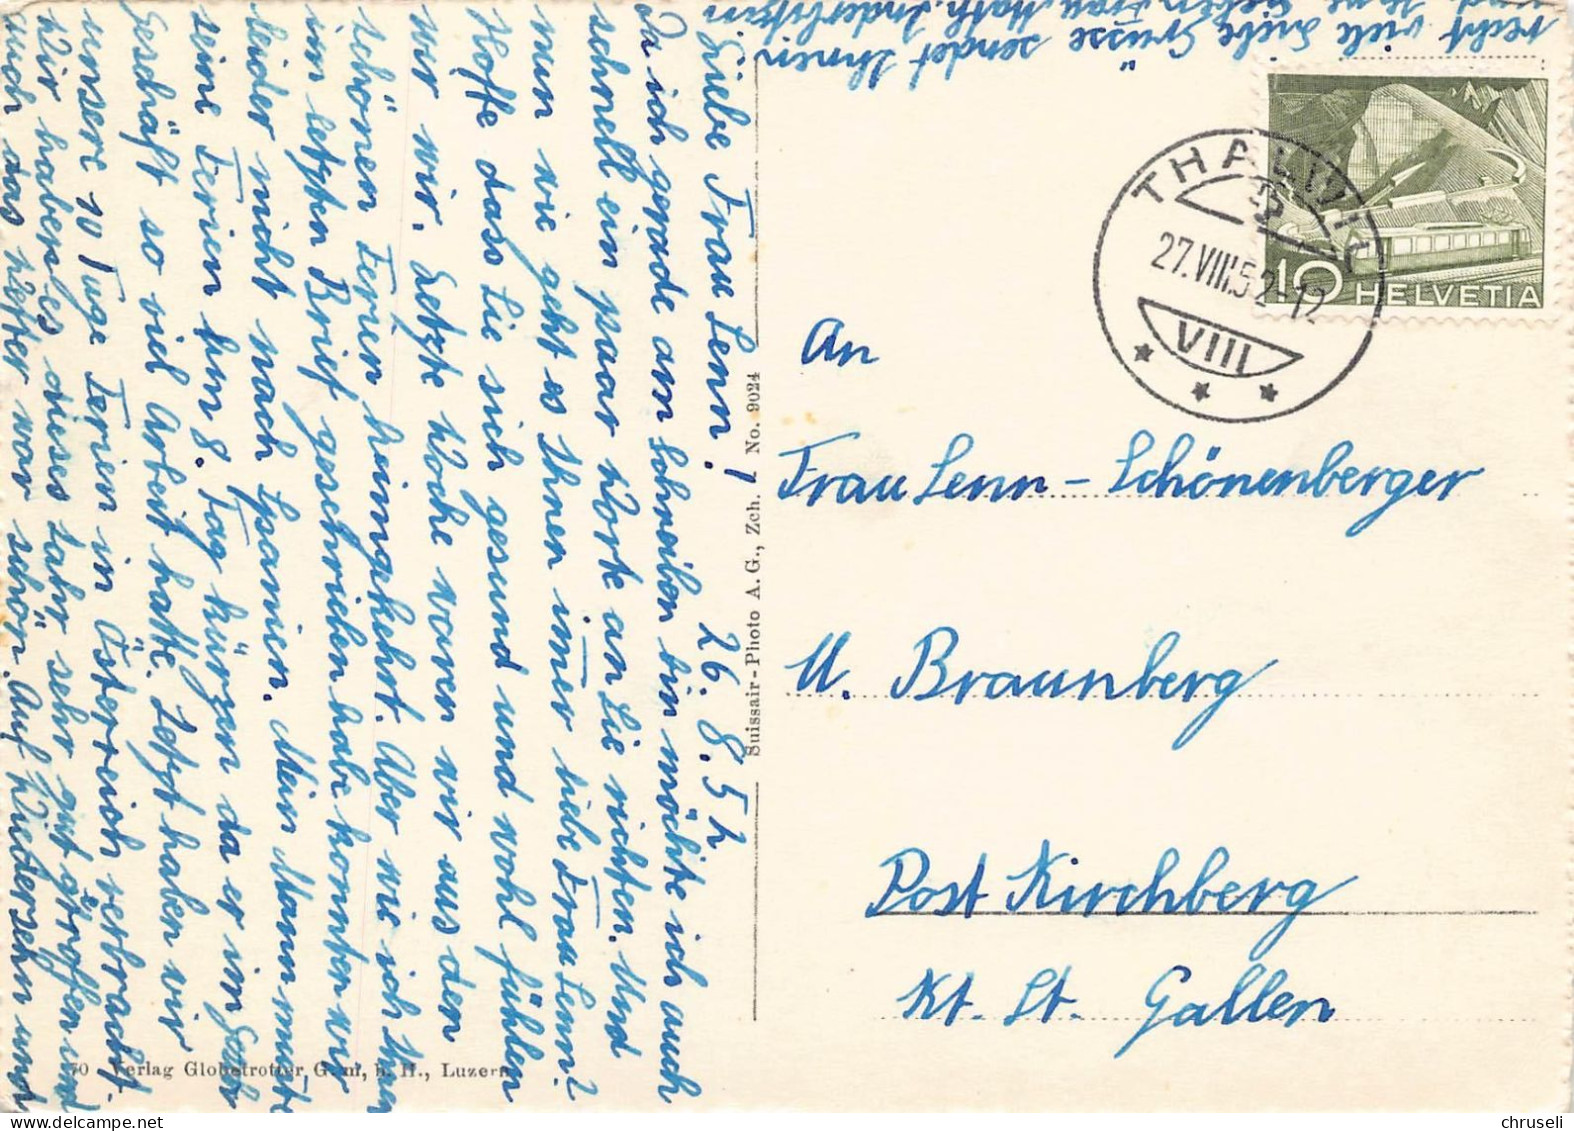 Liebe Frau Senn! 26.8.52
Da ich gerade am Schreiben bin möchte ich auch
schnell ein paar Worte an Sie richten. Und
nun wie geht es Ihnen imer liebe Frau Senn?
Hoffe dass Sie sich gesund und wohl fühlen
wie wir. Letzte Woche waren wir aus den
schönen Ferien heimgekehrt. Aber wie ich Ihnen
im letzten Brief geschrieben habe konnten wir
leider nicht nach Spanien. Mein Mann musste
seine Ferien um 8. Tag kürzen da er im
Geschäft so viel Arbeit hatte. Jetzt haben wir
unsere 10 Tage Ferien in Österreich verbracht.
Wir haben es dieses Jahr sehr gut getroffen und
auch das Wetter war schön. Auf Wiedersehn und
recht viele liebe Grüsse sendet Ihnen
Frau Math. Inderbitzin
Suissair-Photo A.G., Zch. No. 9024
Verlag Globetrotter G.m.b.H., Luzern
THALWIL
27.VIII.52-12
VIII
10 HELVETIA
An
Frau Senn-Schönenberger
U. Braunberg
Post Kirchberg
Kt. St. Gallen
chruseli